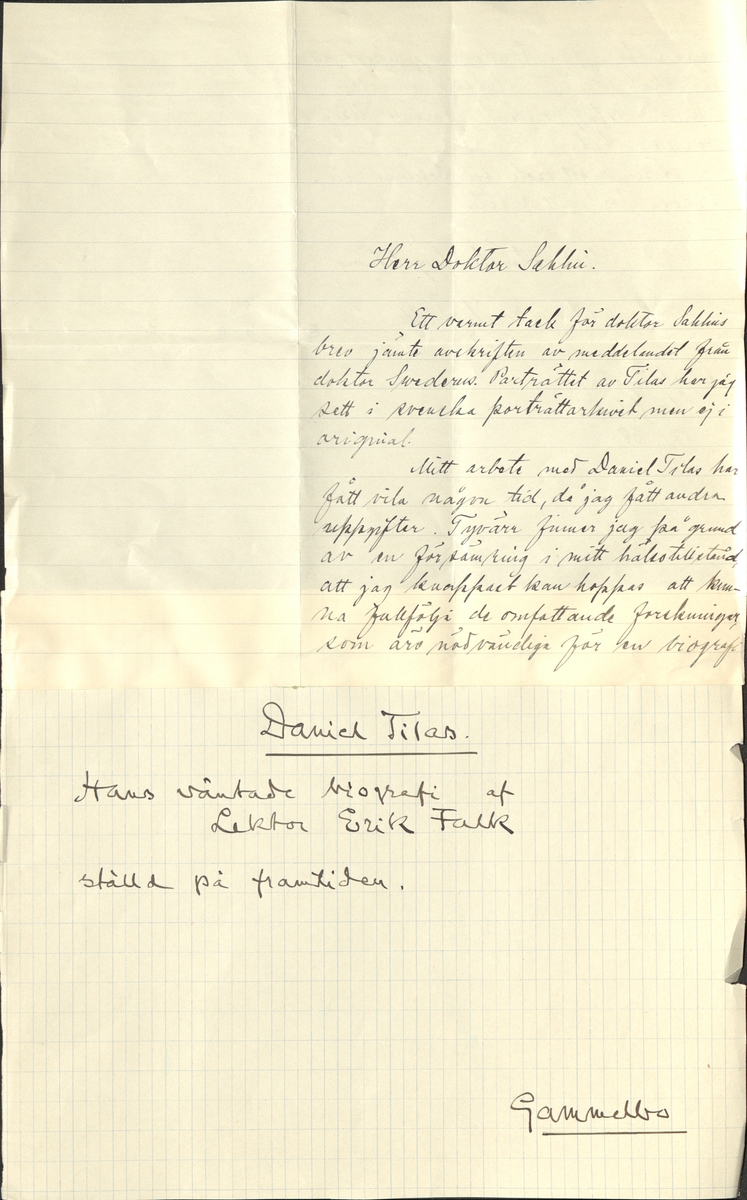 Herr Doktor Sahlin.
Ett varmt tack för doktor Sahlins
brev jämte avskriften av meddelandet från
doktor Swederus. Porträttet av Tilas har jag
sett i svenska porträttarkivet men ej i
original.
Mitt arbete med Daniel Tilas har
fått vila någon tid, då jag fått andra
uppgifter. Tyvärr finner jag på grund
av en försämring i mitt hälsotillstånd,
att jag knappast kan hoppas att kun-
na fullfölja de omfattande forskningar,
som äro nödvändiga för en biografi
Daniel Tilas.
Hans väntade biografi af
Lektor Erik Falk
ställd på framtiden.
Gammelbo